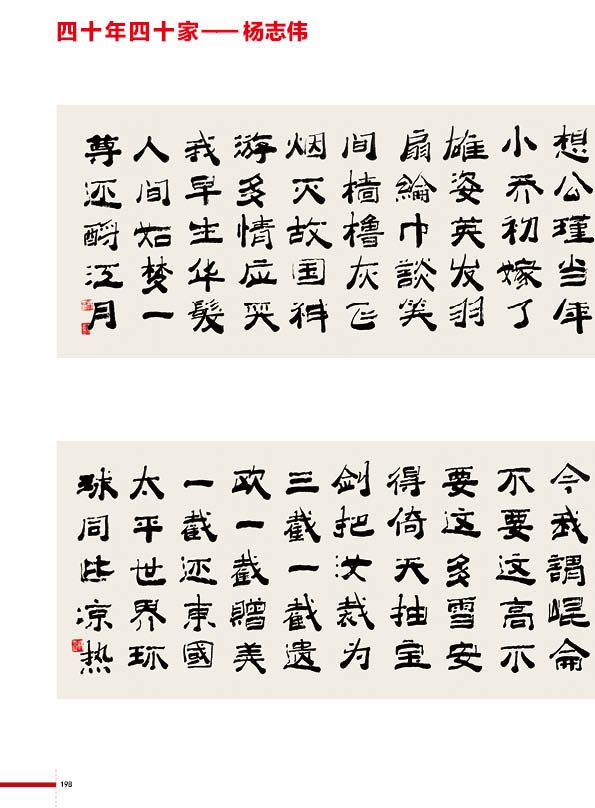 四十年四十家——杨志伟
想公瑾当年
小乔初嫁了
雄姿英发羽
扇綸巾談笑
间樯櫓灰飞
烟灭故国神
游多情应笑
我早生华髮
人间如梦一
尊还酹江月
今我謂崐侖
不要这高不
要这多雪安
得倚天抽宝
剑把汝裁为
三截一截遗
欧一截贈美
一截还東國
太平世界环
球同此凉热
198